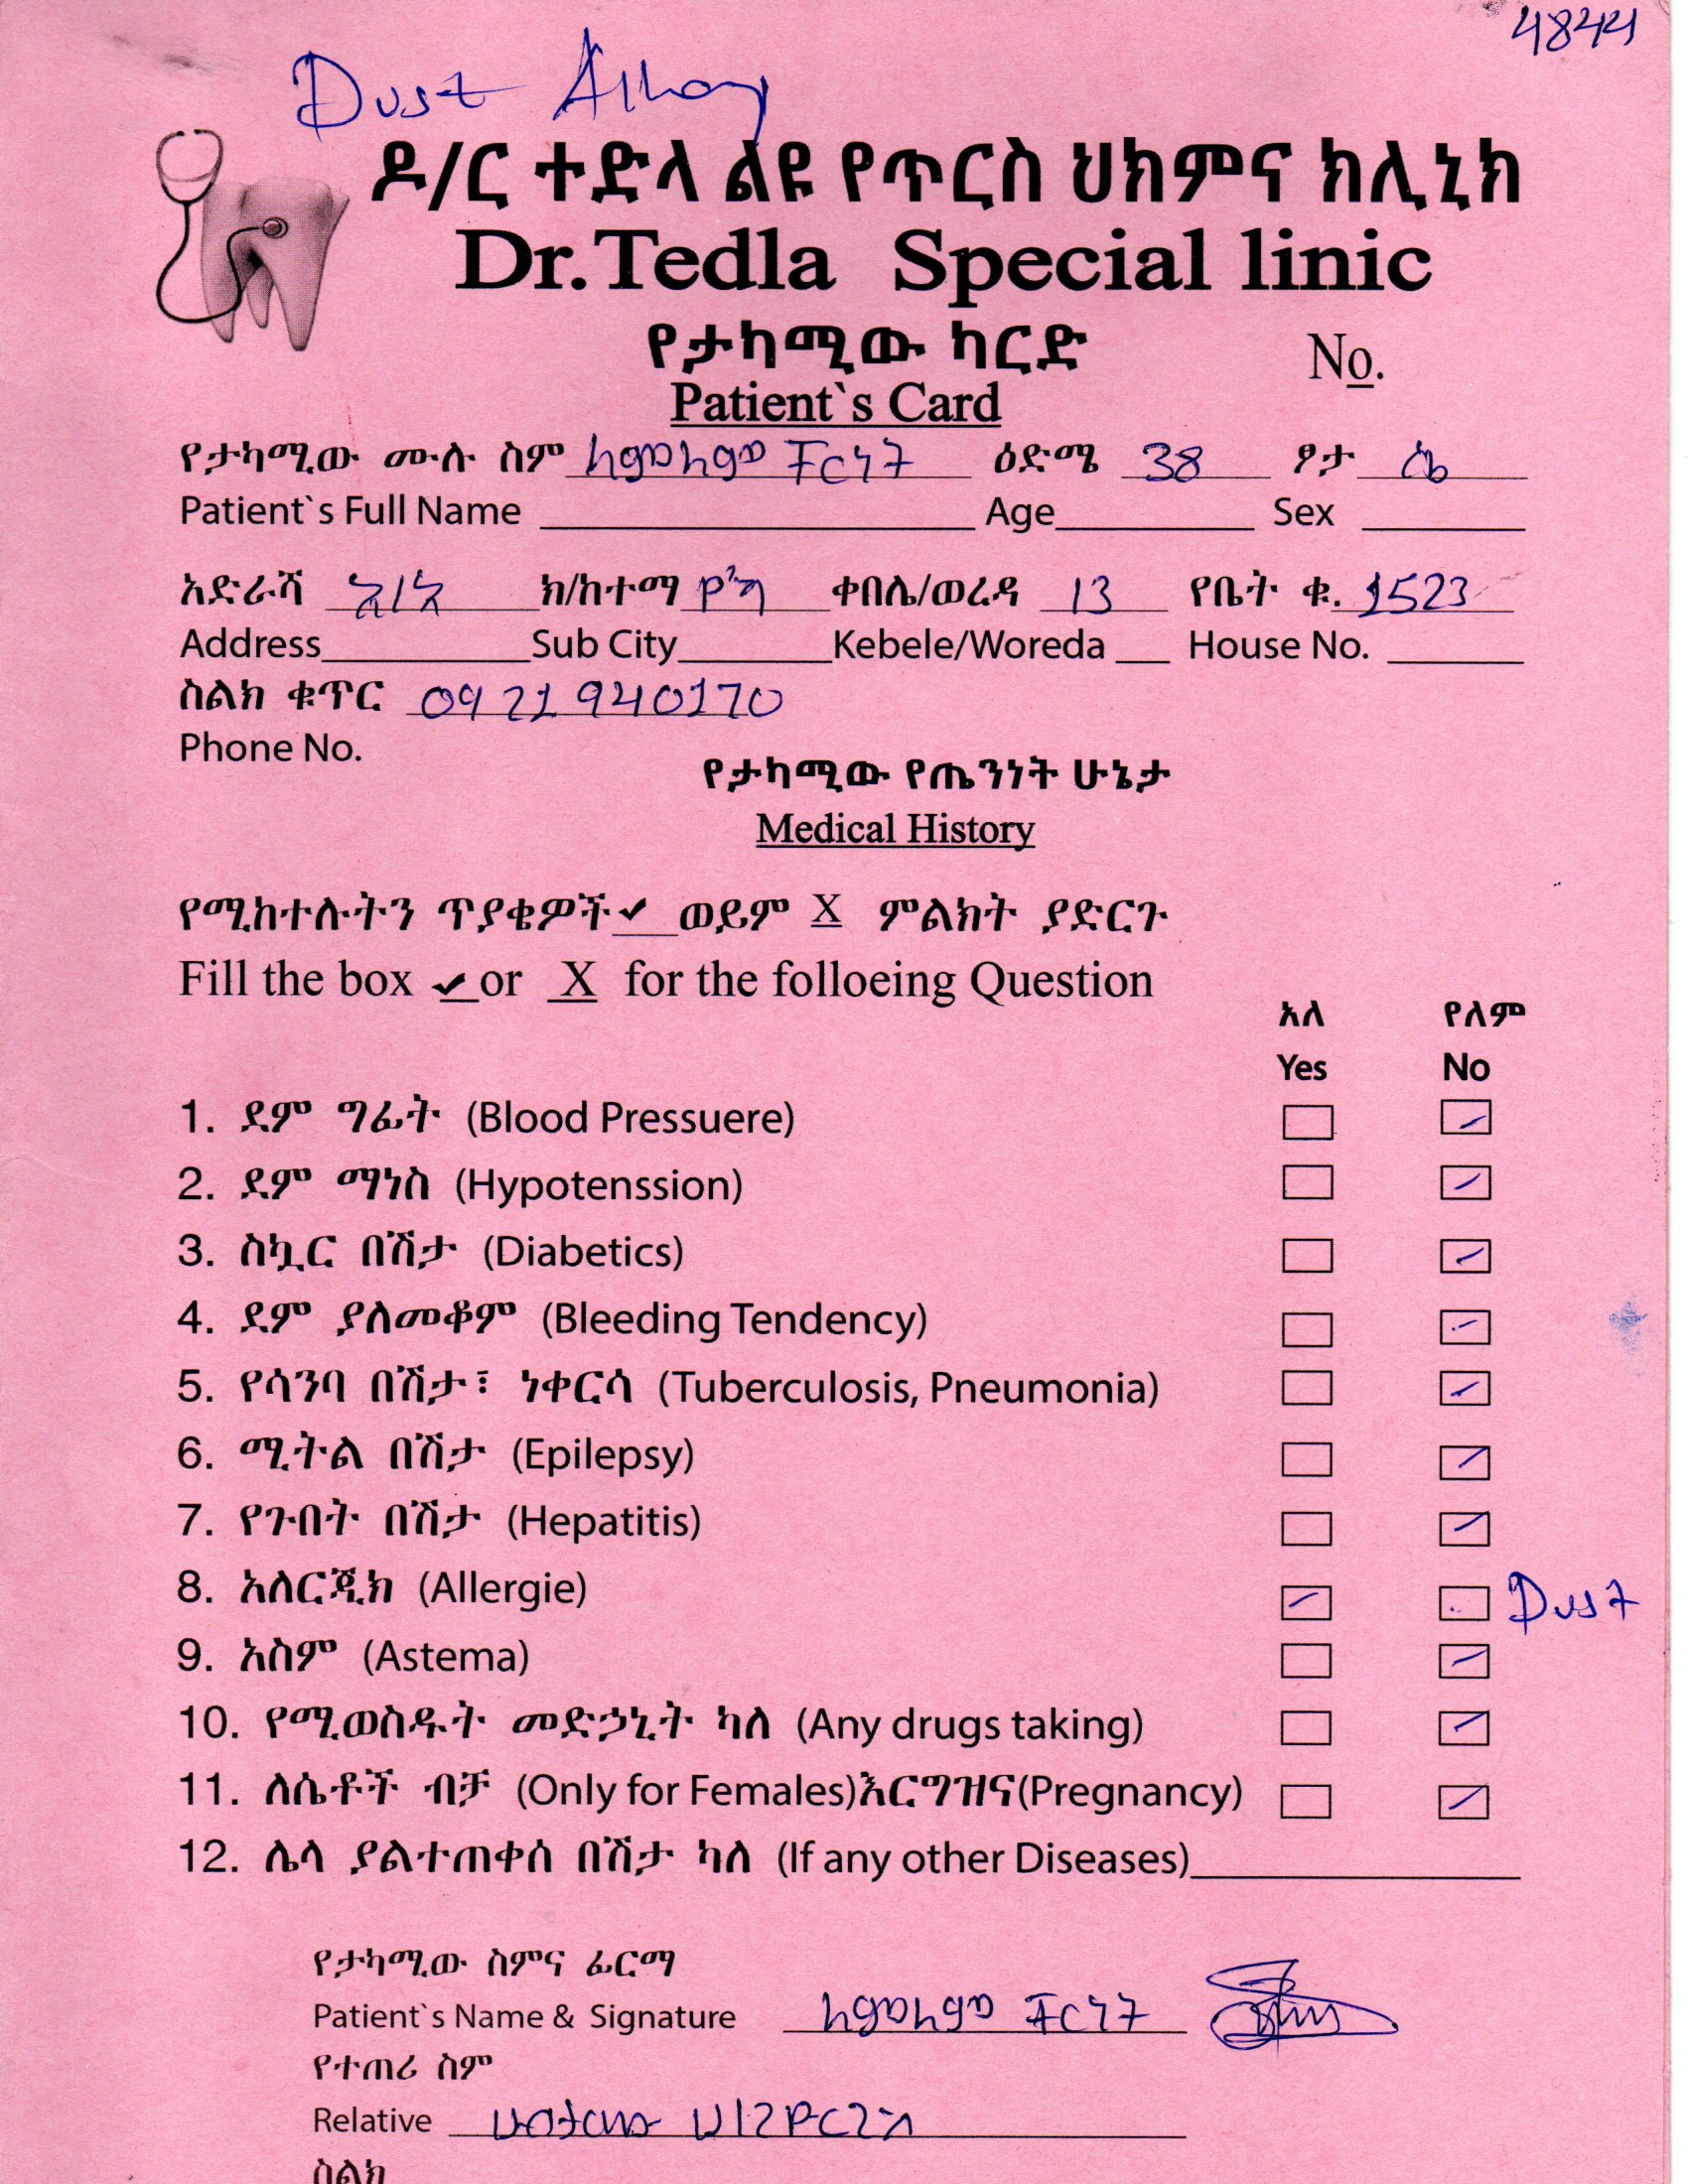 4844
Dust Allergy
ዶ/ር ተድላ ልዩ የጥርስ ህክምና ክሊኒክ
Dr.Tedla Special linic
የታካሚው ካርድ
No.
Patient`s Card
የታካሚው ሙሉ ስም ዕድሜ 38 ፆታ ሴ
Patient`s Full Name Age Sex
አድራሻ አ/አ ክ/ከተማ የካ ቀበሌ/ወረዳ 13 የቤት ቁ. 1523
Address Sub City Kebele/Woreda House No.
ስልክ ቁጥር 0921940170
Phone No.
የታካሚው የጤንነት ሁኔታ
Medical History
የሚከተሉትን ጥያቄዎች✓ ወይም X ምልክት ያድርጉ
Fill the box ✓ or X for the folloeing Question
አለ የለም
Yes No
1. ደም ግፊት (Blood Pressuere)
2. ደም ማነስ (Hypotenssion)
3. ስኳር በሽታ (Diabetics)
4. ደም ያለመቆም (Bleeding Tendency)
5. የሳንባ በሽታ፣ ነቀርሳ (Tuberculosis, Pneumonia)
6. ሚትል በሽታ (Epilepsy)
7. የጉበት በሽታ (Hepatitis)
8. አለርጂክ (Allergie) Dust
9. አስም (Astema)
10. የሚወስዱት መድኃኒት ካለ (Any drugs taking)
11. ለሴቶች ብቻ (Only for Females)እርግዝና(Pregnancy)
12. ሌላ ያልተጠቀሰ በሽታ ካለ (If any other Diseases)
የታካሚው ስምና ፊርማ
Patient`s Name & Signature
የተጠሪ ስም
Relative
ስልክ